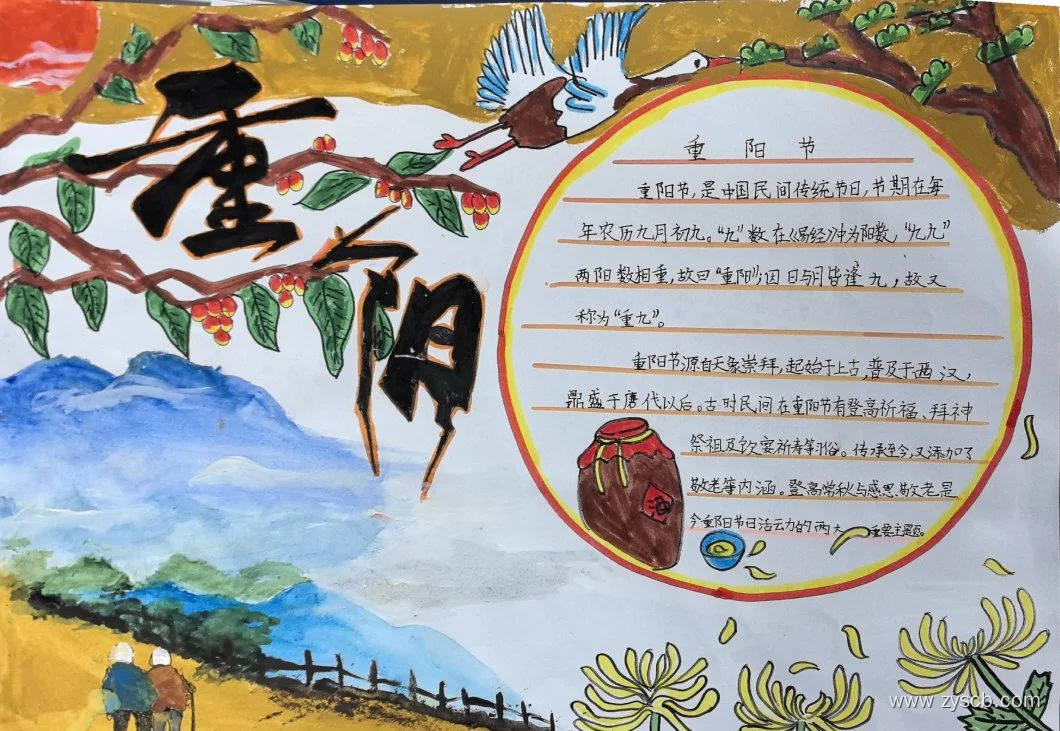 重阳
重阳节
重阳节,是中国民间传统节日,节期在每
年农历九月初九。“九”数在《易经》中为阳数,“九九”
两阳数相重,故曰“重阳”;因日与月皆逢九,故又
称为“重九”。
重阳节源自天象崇拜,起始于上古,普及于西汉,
鼎盛于唐代以后。古时民间在重阳节有登高祈福、拜神
祭祖及饮宴祈寿等习俗。传承至今,又添加了
敬老等内涵。登高赏秋与感恩敬老是
今重阳节日活动的两大重要主题。
酒
www.zyscb.com